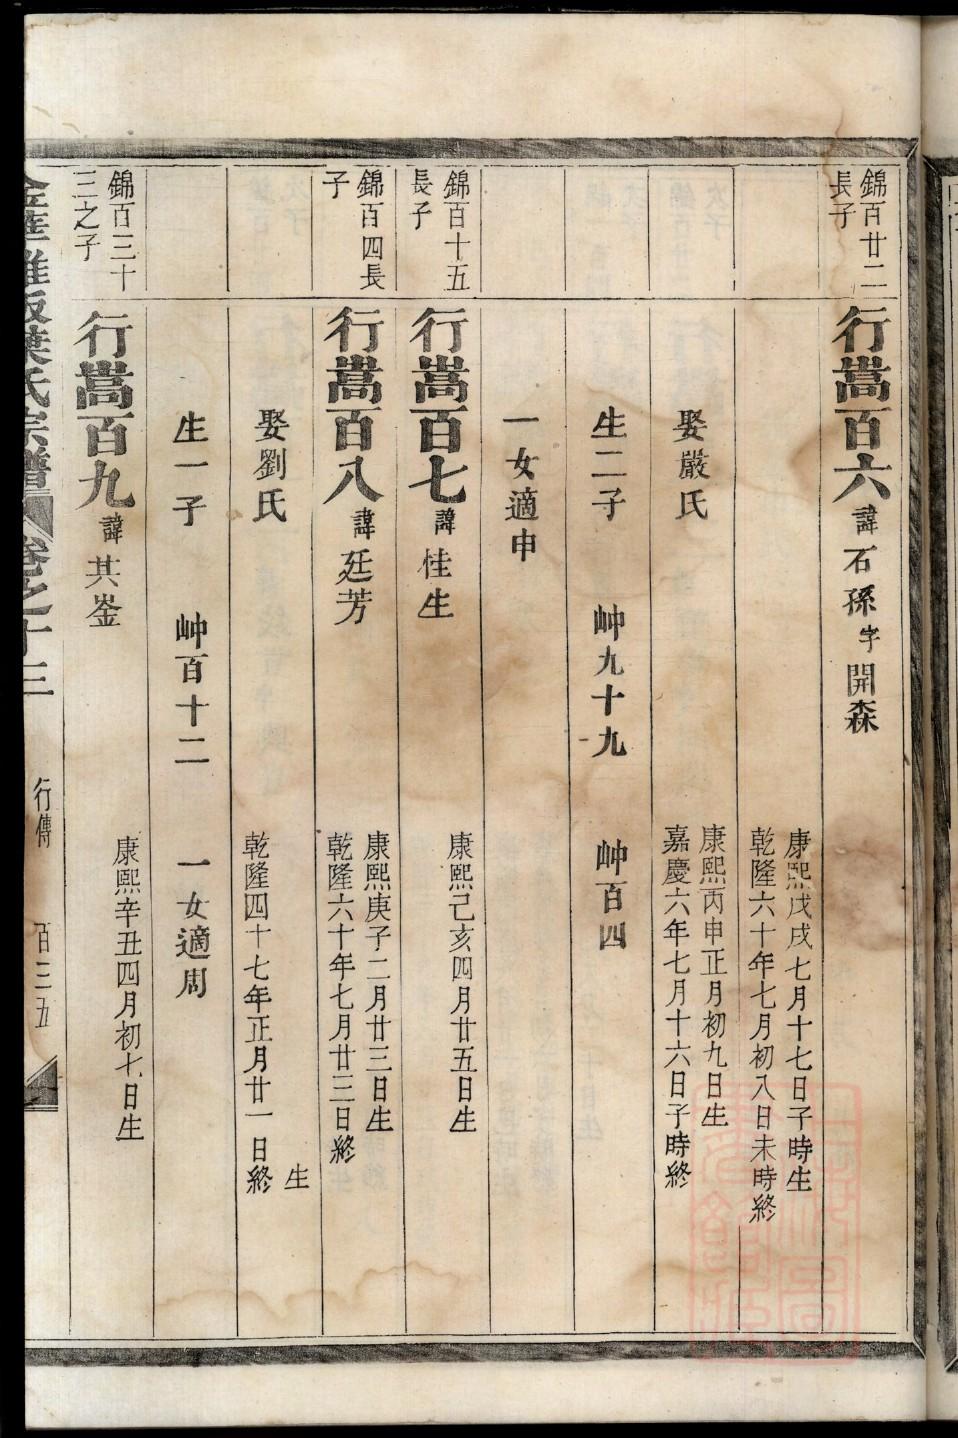 錦百廿二
長子
行嵩百六 諱 石孫 字 開森
康熙戊戌七月十七日子時生
乾隆六十年七月初八日未時終
娶嚴氏
康熙丙申正月初九日生
嘉慶六年七月十六日子時終
生二子 岫九十九 岫百四
一女適申
錦百十五
長子
行嵩百七 諱 桂生
康熙己亥四月廿五日生
錦百四長
子
行嵩百八 諱 廷芳
康熙庚子二月廿三日生
乾隆六十年七月廿三日終
娶劉氏
生
乾隆四十七年正月廿一日終
生一子 岫百十二 一女適周
錦百三十
三之子
行嵩百九 諱 其崟
康熙辛丑四月初七日生
金華雅畈葉氏宗譜 卷之十三 行傳 百三五